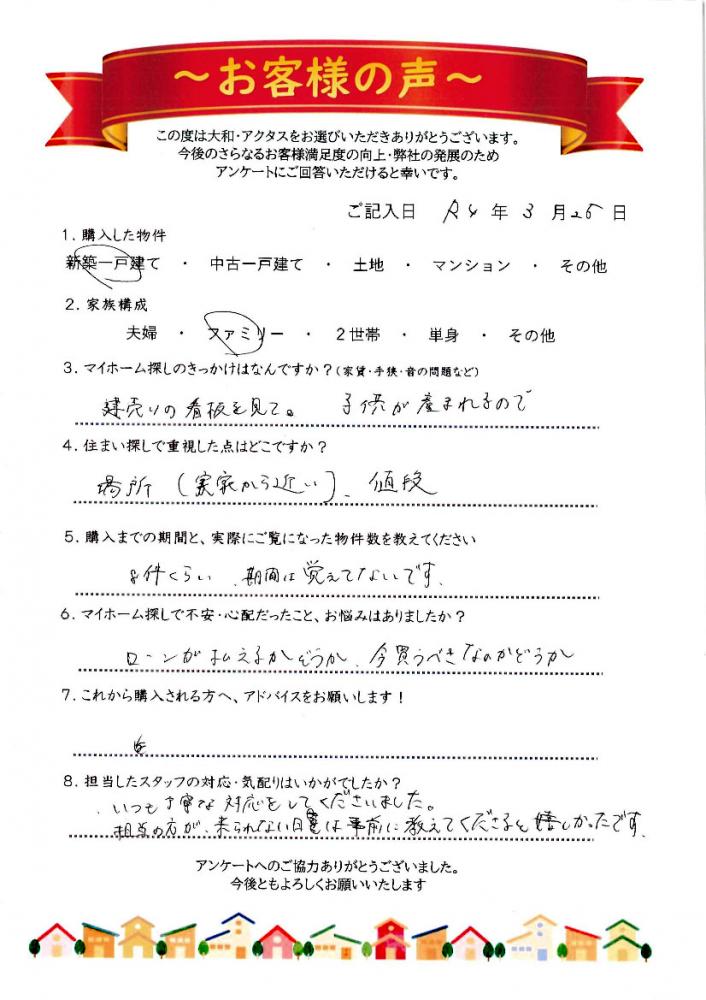 ～お客様の声～
この度は大和・アクタスをお選びいただきありがとうございます。
今後のさらなるお客様満足度の向上・弊社の発展のため
アンケートにご回答いただけると幸いです。
ご記入日 R4 年 3 月 25 日
1. 購入した物件
新築一戸建て ・ 中古一戸建て ・ 土地 ・ マンション ・ その他
2. 家族構成
夫婦 ・ ファミリー ・ 2世帯 ・ 単身 ・ その他
3. マイホーム探しのきっかけはなんですか？(家賃・手狭・音の問題など)
建売りの看板を見て。 子供が産まれるので
4. 住まい探しで重視した点はどこですか？
場所 (実家から近い)、値段
5. 購入までの期間と、実際にご覧になった物件数を教えてください
8件くらい、期間は覚えてないです
6. マイホーム探しで不安・心配だったこと、お悩みはありましたか？
ローンが払えるかどうか、今買うべきなのかどうか
7. これから購入される方へ、アドバイスをお願いします！
8. 担当したスタッフの対応・気配りはいかがでしたか？
・いつも丁寧な対応をしてくださいました。
・担当の方が、来られない日は事前に教えてくださると嬉しかったです
アンケートへのご協力ありがとうございました。
今後ともよろしくお願いいたします